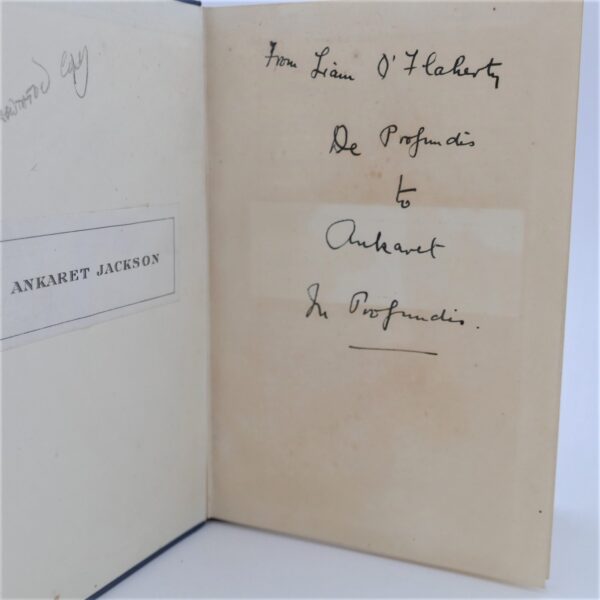 Copy
ANKARET JACKSON
From Liam O'Flaherty
De Profundis
to
Ankaret
In Profundis.